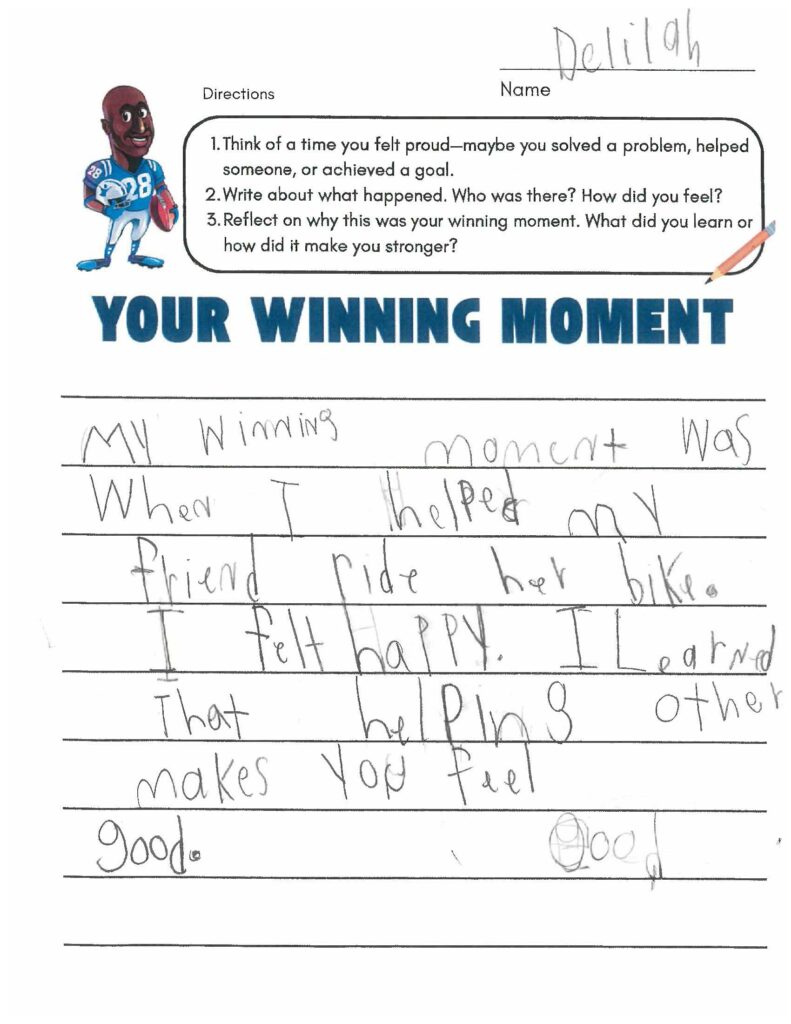 Delilah
Name
Directions
1. Think of a time you felt proud—maybe you solved a problem, helped
someone, or achieved a goal.
2. Write about what happened. Who was there? How did you feel?
3. Reflect on why this was your winning moment. What did you learn or
how did it make you stronger?
28
28
YOUR WINNING MOMENT
My winning moment was
When I helped my
friend ride her bike.
I felt happy. I Learned
That helping other
makes you feel
good. good